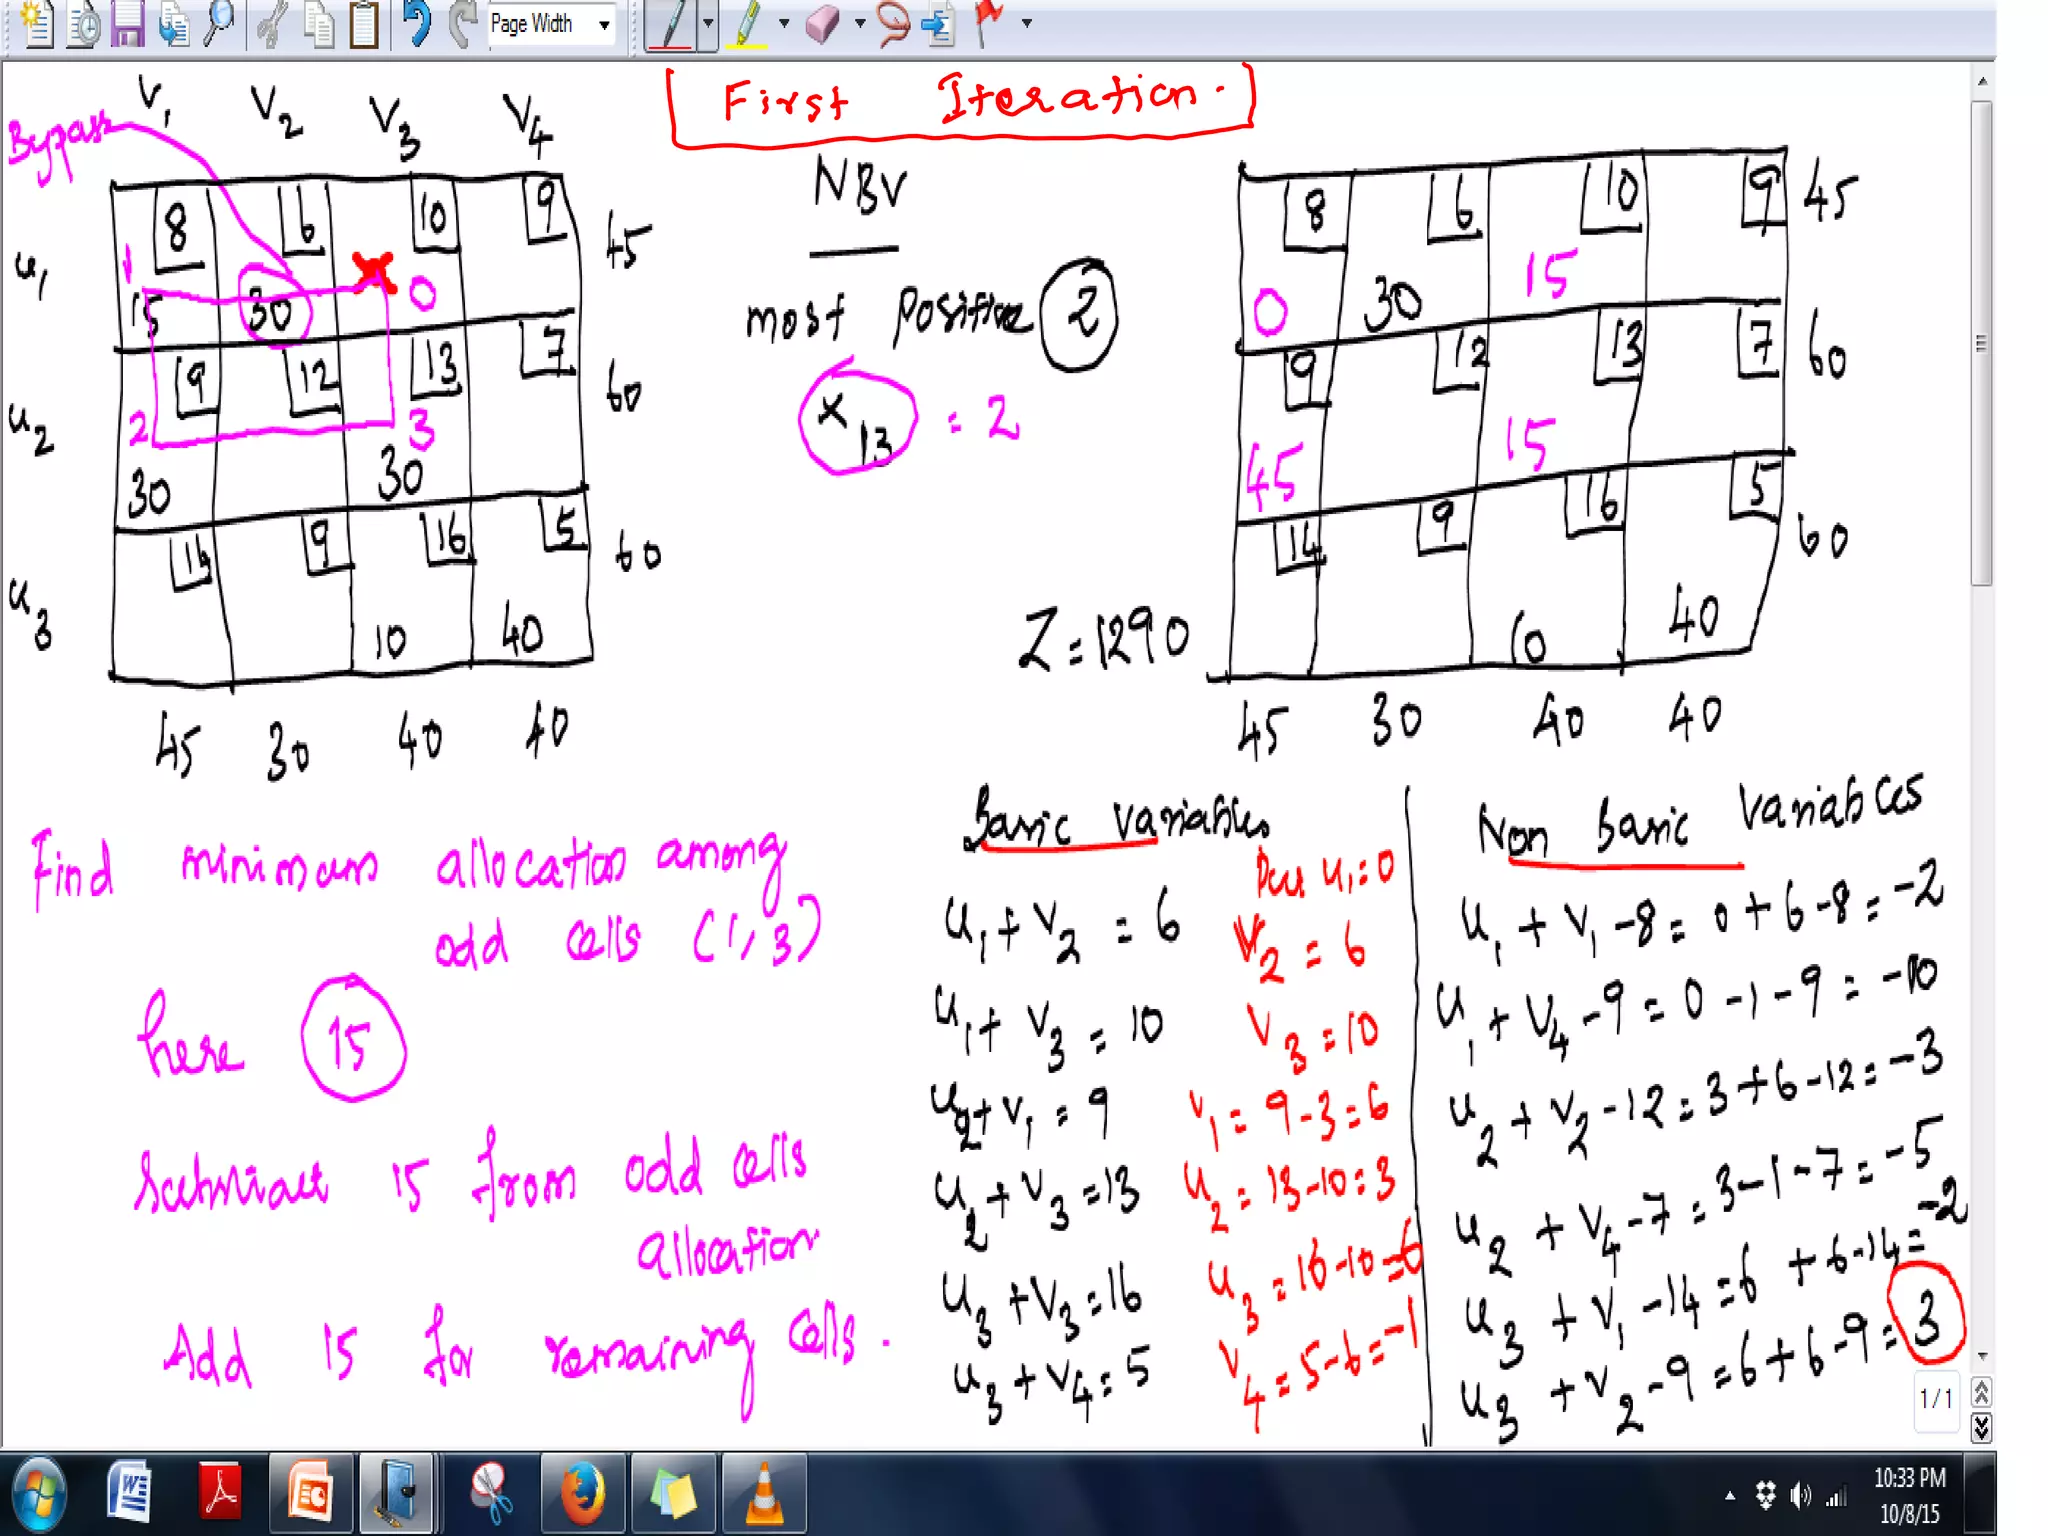 Page Width
First Iteration.
Bypass
V1 V2 V3 V4
8 6 10 9
u1 15 30 0 45
9 12 13 7
u2 2 3 60
30 30
14 9 16 5
u3 60
10 40
45 30 40 40
NBV
most Positive 2
x13 = 2
8 6 10 9 45
0 30 15
9 12 13 7 60
45 15
14 9 16 5 60
10 40
45 30 40 40
Z = 1290
Find minimum allocation among
odd cells (1, 3)
here 15
Subtract 15 from odd cells
allocation
Add 15 for remaining cells.
Basic Variables
Put u1 = 0
u1 + v2 = 6 v2 = 6
u1 + v3 = 10 v3 = 10
u2 + v1 = 9 v1 = 9 - 3 = 6
u2 + v3 = 13 u2 = 13 - 10 = 3
u3 + v3 = 16 u3 = 16 - 10 = 6
u3 + v4 = 5 v4 = 5 - 6 = -1
Non Basic Variables
u1 + v1 - 8 = 0 + 6 - 8 = -2
u1 + v4 - 9 = 0 - 1 - 9 = -10
u2 + v2 - 12 = 3 + 6 - 12 = -3
u2 + v4 - 7 = 3 - 1 - 7 = -5
u3 + v1 - 14 = 6 + 6 - 14 = -2
u3 + v2 - 9 = 6 + 6 - 9 = 3
1 / 1
10:33 PM
10/8/15